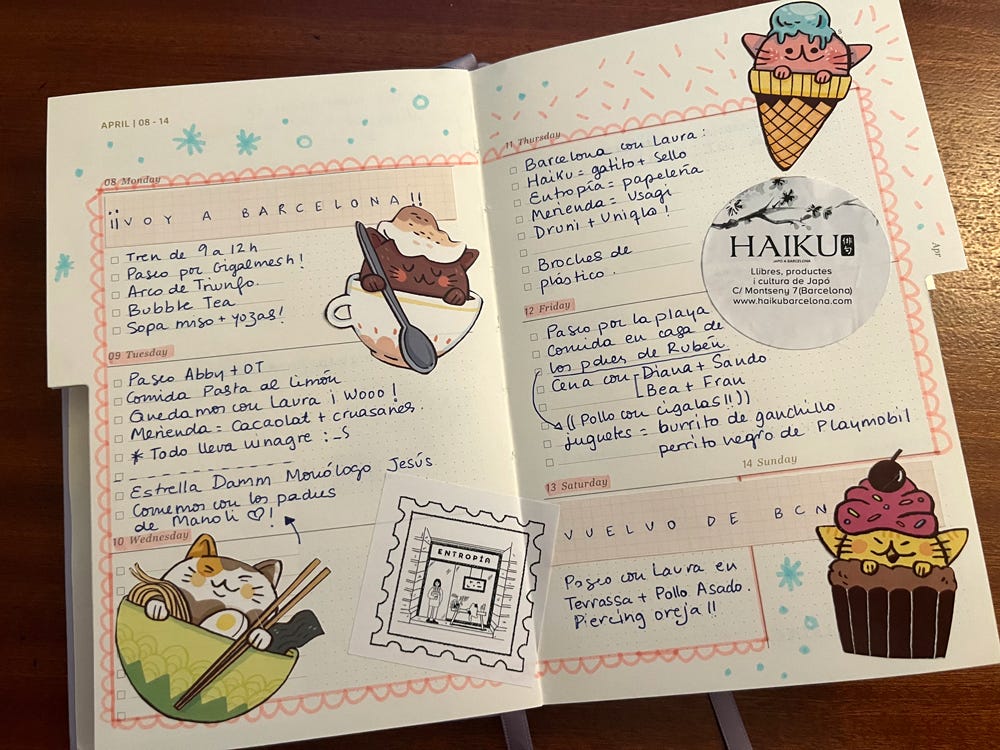 APRIL | 08 - 14
08 Monday
¡¡VOY A BARCELONA!!
Tren de 9 a 12h
Paseo por Gigalmesh!
Arco de Triunfo.
Bubble Tea
Sopa miso + yozas!
09 Tuesday
Paseo Abby + OT
Comida Pasta al limón
Quedamos con Laura ¡Wooo!
Merienda = Cacaolat + cruasanes.
* Todo lleva vinagre :_S
Estrella Damm Monólogo Jesús
Comemos con los padres
de Manoli ♡!
10 Wednesday
ENTROPÍA
11 Thursday
Barcelona con Laura:
Haiku = gatito + sello
Entropía = papelería
Merienda = Usagi
Druni + Uniqlo!
Broches de
plástico.
HAIKU
俳句
JAPÓ A BARCELONA
Llibres, productes
i cultura de Japó
C/ Montseny 7 (Barcelona)
www.haikubarcelona.com
Apr
12 Friday
Paseo por la playa
Comida en casa de
los pdres de Rubén
Cena con Diana + Sando
Bea + Fran
((Pollo con cigalas!!))
juguetes = burrito de ganchillo
perrito negro de Playmobil
13 Saturday
14 Sunday
VUELVO DE BCN
Paseo con Laura en
Terrassa + Pollo Asado.
Piercing oreja!!